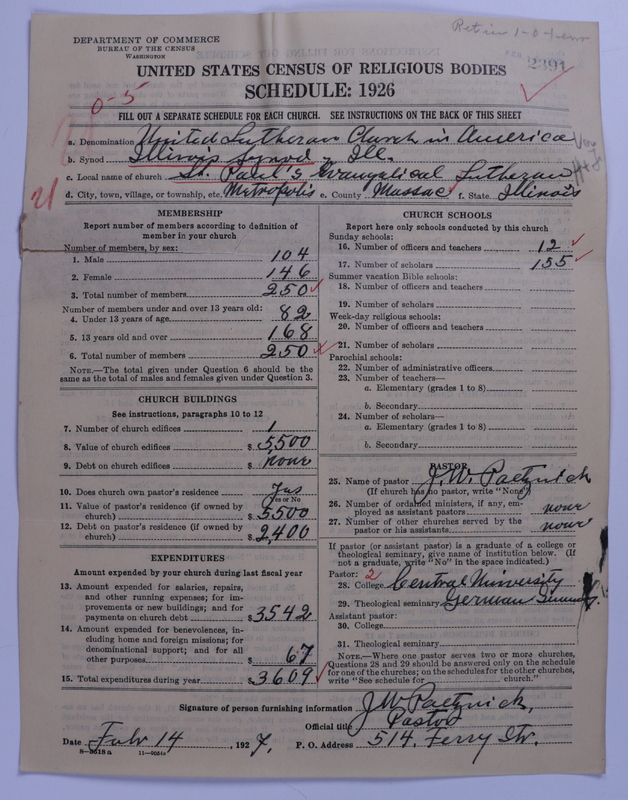 DEPARTMENT OF COMMERCE
BUREAU OF THE CENSUS
WASHINGTON
2391
UNITED STATES CENSUS OF RELIGIOUS BODIES
SCHEDULE: 1926
0-5
FILL OUT A SEPARATE SCHEDULE FOR EACH CHURCH. SEE INSTRUCTIONS ON THE BACK OF THIS SHEET
a. Denomination United Lutheran Church in America
b. Synod Illinois Synod Ill.
c. Local name of church St. Paul's Evangelical Lutheran
d. City, town, village, or township, etc. Metropolis e. County Massac f. State Illinois
MEMBERSHIP
Report number of members according to definition of
member in your church
Number of members, by sex:
1. Male 104
2. Female 146
3. Total number of members 250
Number of members under and over 13 years old:
4. Under 13 years of age 82
5. 13 years old and over 168
6. Total number of members 250
NOTE.—The total given under Question 6 should be the
same as the total of males and females given under Question 3.
CHURCH BUILDINGS
See instructions, paragraphs 10 to 12
7. Number of church edifices 1
8. Value of church edifices $ 5,500
9. Debt on church edifices $ none
10. Does church own pastor's residence Yes
Yes or No
11. Value of pastor's residence (if owned by
church) $ 5500
12. Debt on pastor's residence (if owned by
church) $ 2,400
EXPENDITURES
Amount expended by your church during last fiscal year
13. Amount expended for salaries, repairs,
and other running expenses; for im-
provements or new buildings; and for
payments on church debt $ 3542
14. Amount expended for benevolences, in-
cluding home and foreign missions; for
denominational support; and for all
other purposes $ 67
15. Total expenditures during year $ 3609
CHURCH SCHOOLS
Report here only schools conducted by this church
Sunday schools:
16. Number of officers and teachers 12
17. Number of scholars 155
Summer vacation Bible schools:
18. Number of officers and teachers
19. Number of scholars
Week-day religious schools:
20. Number of officers and teachers
21. Number of scholars
Parochial schools:
22. Number of administrative officers
23. Number of teachers—
a. Elementary (grades 1 to 8)
b. Secondary
24. Number of scholars—
a. Elementary (grades 1 to 8)
b. Secondary
PASTOR
25. Name of pastor J. W. Paetznick
(If church has no pastor, write "None")
26. Number of ordained ministers, if any, em-
ployed as assistant pastors none
27. Number of other churches served by the
pastor or his assistants none
If pastor (or assistant pastor) is a graduate of a college or
theological seminary, give name of institution below. (If
not a graduate, write "No" in the space indicated.)
Pastor: 2
28. College Central University
29. Theological seminary German
Assistant pastor:
30. College
31. Theological seminary
NOTE.—Where one pastor serves two or more churches,
Questions 28 and 29 should be answered only on the schedule
for one of the churches; on the schedules for the other churches,
write "See schedule for church."
Signature of person furnishing information J W Paetznick,
Official title Pastor
Date Febr 14, 1927. P. O. Address 514. Ferry Str.
8-5618 a 11-9054a